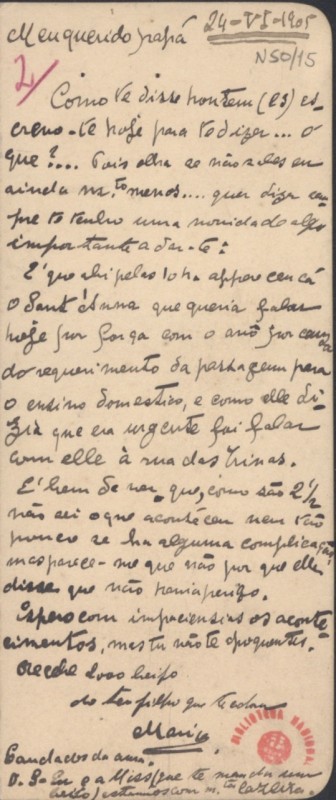 24-VI-1905
Meu querido papá
N50/15
2/
Como te disse hontem (23) es-
crevo-te hoje para te dizer... o
que?... Pois olha se não sabes eu
ainda m.to menos.... quer dizer sem-
pre te tenho uma novidade algo
importante a dar-te:
É que ahi pelas 10 h. appareceu cá
o Sant'Anna que queria fallar
hoje por força com o avô por causa
do requerimento da passagem para
o ensino domestico, e como elle di-
zia que era urgente foi fallar
com elle á rua das Trinas.
É bem de ver, que, como são 2 1/2
não sei o que aconteceu nem tão
pouco se ha alguma complicação
mas parece-me que não por que elle
disse que não havia perigo.
Espero com impaciencia os aconte-
cimentos, mas tu não te apoquentes.
Recebe 1000 beijos
do teu filho que te adora
Mario
BIBLIOTECA NACIONAL
Saudades da ama.
P.S-Eu e a Miss (que te manda um
beijo) estamos com m.ta